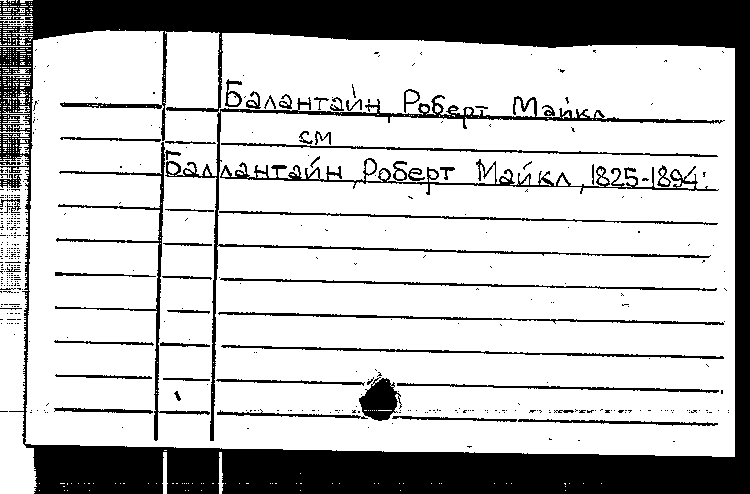 Балантайн, Роберт Майкл
см
Баллантайн, Роберт Майкл, 1825-1894.